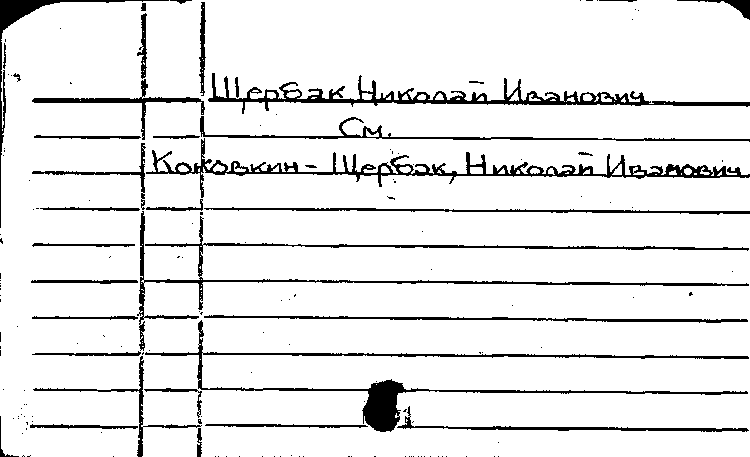 Щербак, Николай Иванович
См.
Коковкин - Щербак, Николай Иванович